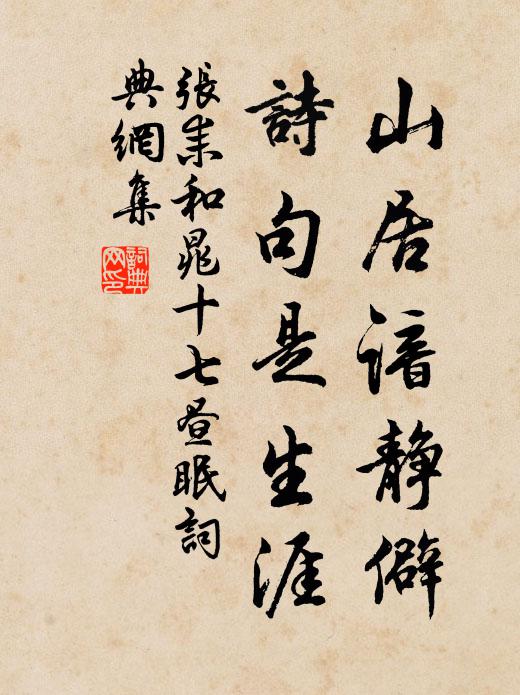 山居谙静僻
詩句是生涯
張耒和晁十七昼眠詞
典網集
詞典
网印